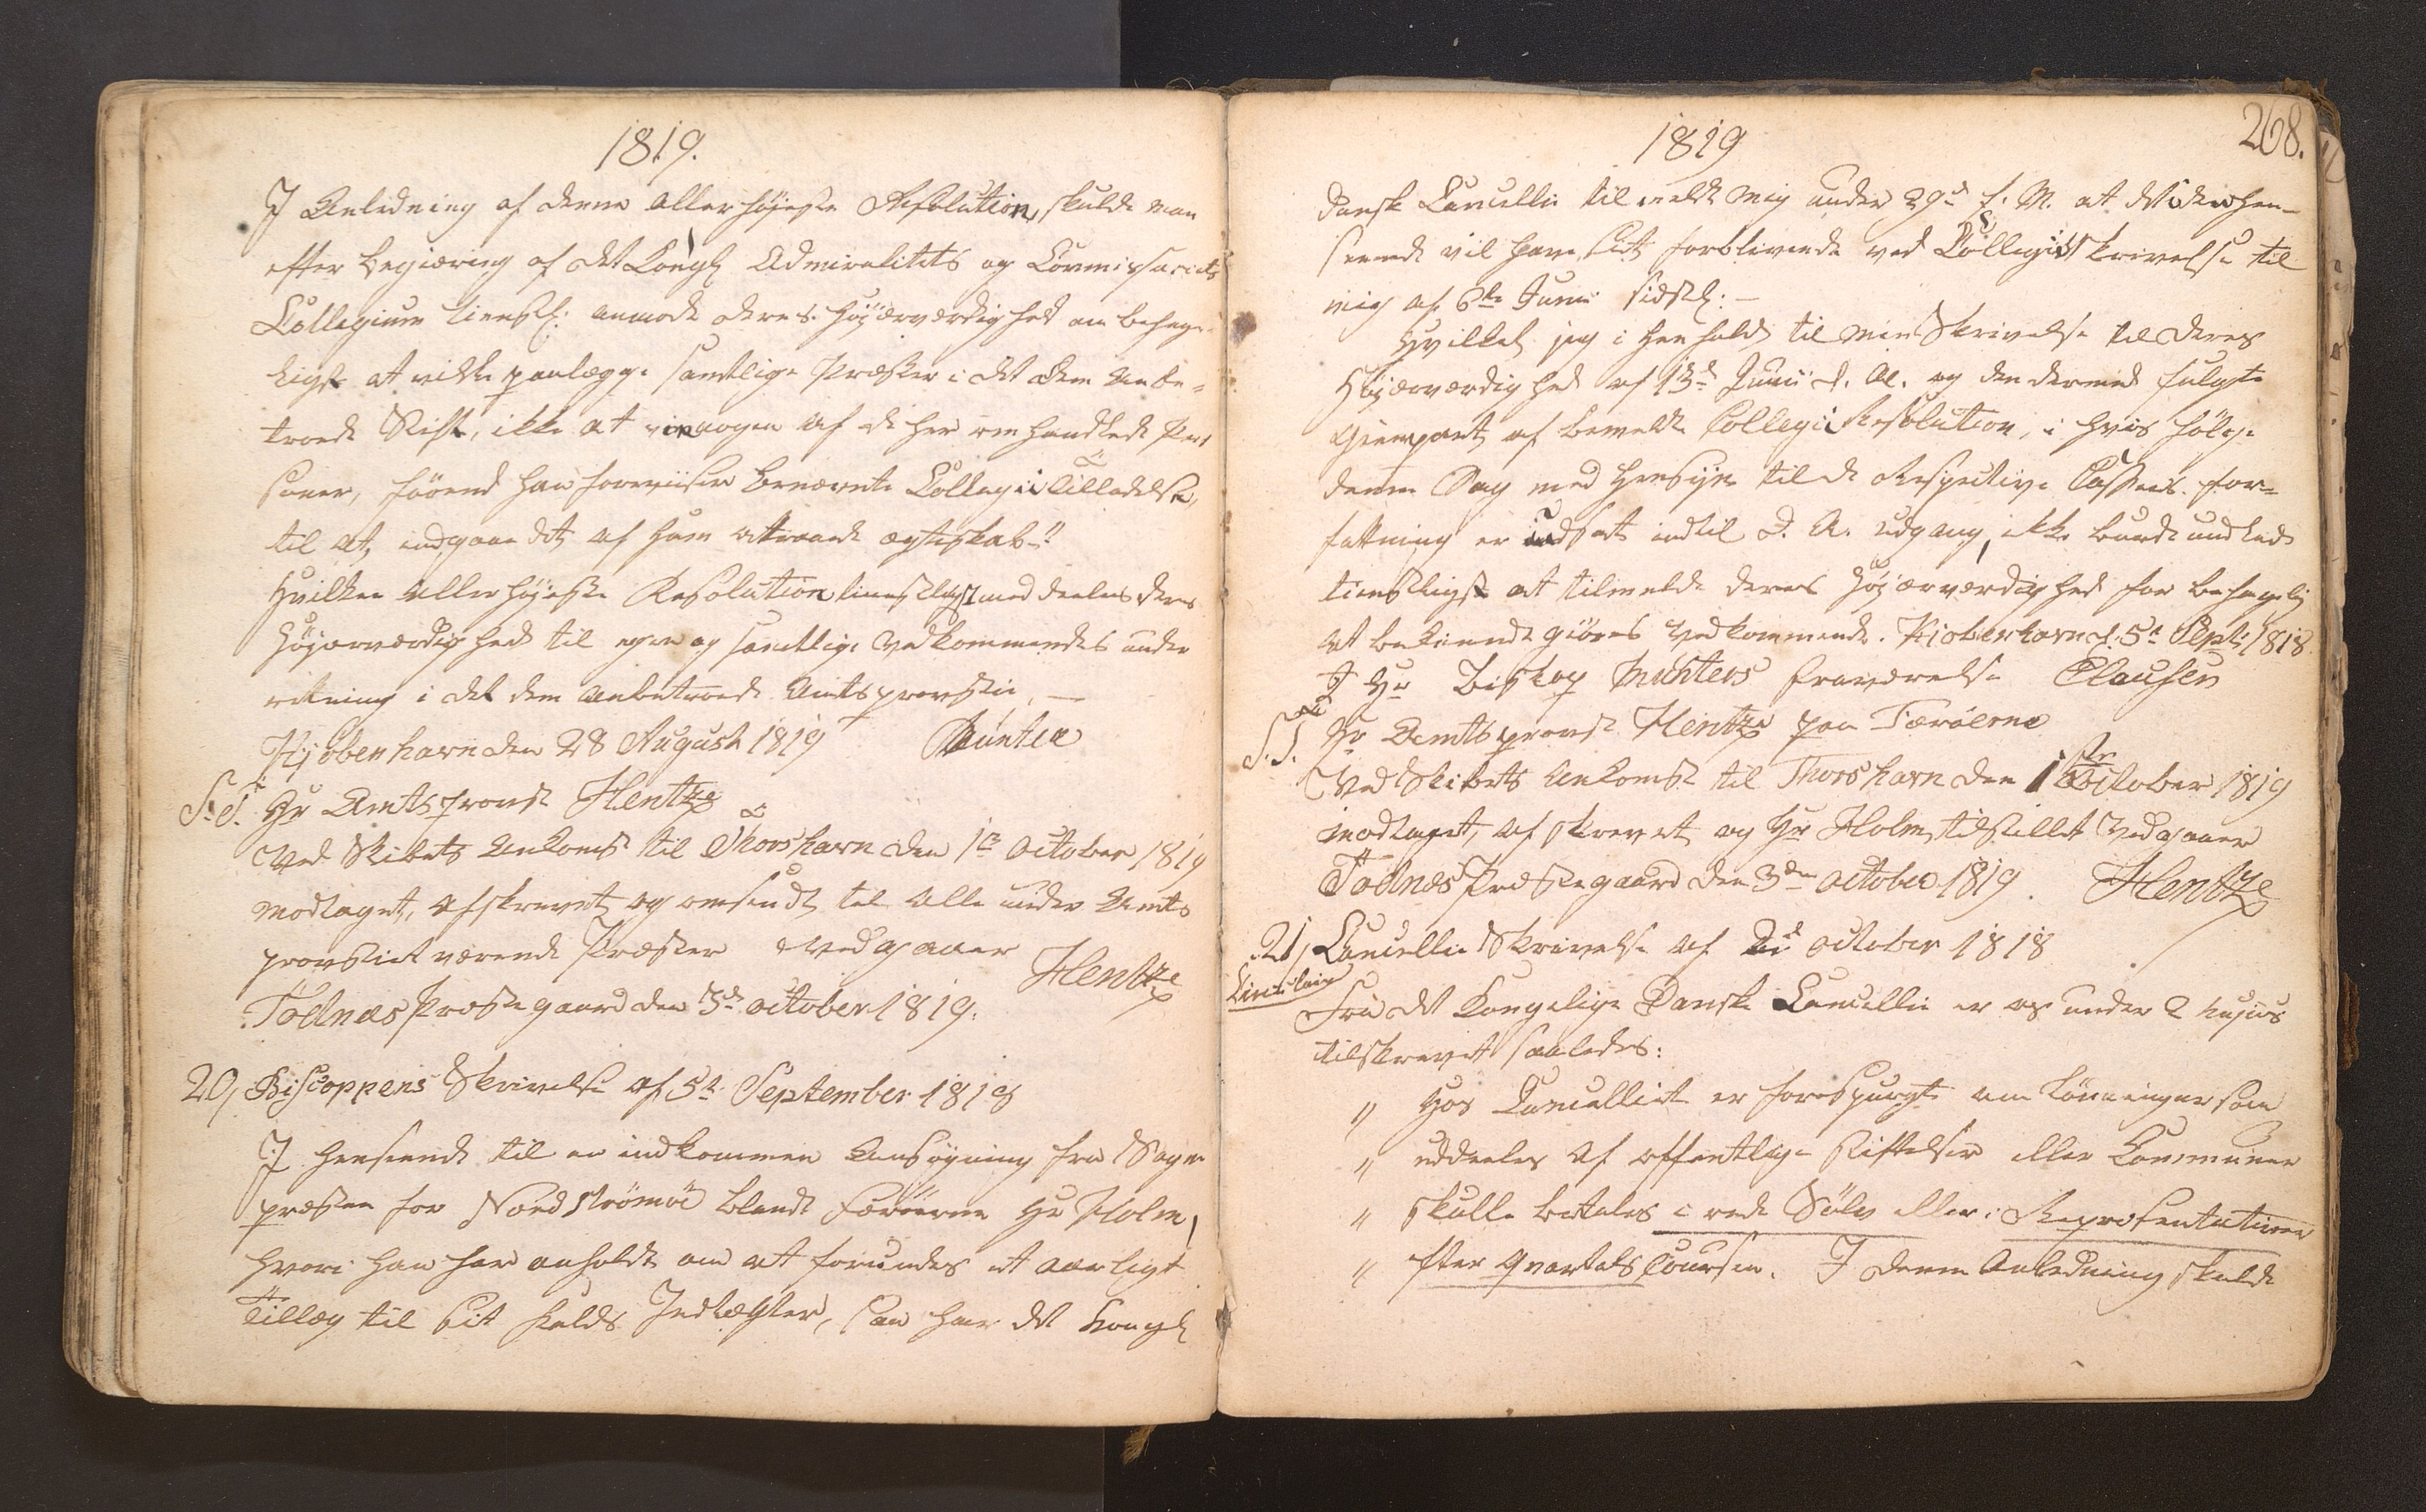 1819.
I Anledning af denne Allerhøjeste Resolution, skulde man
efter Begiæring af det Kongl Admiralitets og Commissariats
Collegium tienstl: anmode Deres Højærværdighed om behage-
ligst at ville paalægge samtlige Præster i det Dem anbe-
troede Stift, ikke at vie nogen af de her omhandlede Per
soner, førend han foreviiser benævnte Collegii Tilladelse,
til at indgaae det af ham attraaede ægteskab."
Hvilken Allerhøjeste Resolution tienstligst meddeles Deres
Højærværdighed til egen og samtlige Vedkommendes under
retning i det dem anbetroede Amtsprovstie, —
Kjøbenhavn den 28 August 1819 Münter
S. T. Hr Amtsprovst Hentze
Ved Skibets Ankomst til Thorshavn den 1te October 1819
modtaget, afskrevet og omsendt til alle under Amts
provstiet værende Præster Vedgaaer
Hentze
Todnæs Præstegaard den 3de October 1819.
20, Biscoppens Skrivelse af 5te September 1818
I Henseende til en indkommen Ansøgning fra Sogne
præsten for Nordstrømöe blandt Færøerne Hr Holm,
hvori han har anholdt om at forundes et aarligt
Tillæg til sit Kalds Indtægter, saa har det Kongl
268.
1819
Danske Cancellie tilmeldt mig under 29de f. M. at det i den Hen-
seende vil have sit forblivende ved Collegiets Skrivelse til
mig af 6te Junii sidstl: —
Hvilket jeg i Henhold til min Skrivelse til Deres
Højærværdighed af 13de Junii d. A. og den dermed fulgte
Gienpart af bemeldte Collegii Resolution, i hvis Følge
denne Sag med Hensyn til de Respective Cassers for-
fattning er udsat indtil d. A. udgang, ikke burde undlade
tienstligst at tilmelde Deres Højærværdighed for behagelig
at bekiendtgiøres Vedkommende. Kjøbenhavn d. 5te Sept: 1818.
I Hr Biskop Münters fraværelse Clausen
S. T. Hr Amtsprovst Hentze paa Færöerne
Ved Skibets Ankomst til Thorshavn den 1ste October 1819
modtaget, afskrevet og Hr Holm tilstillet Vedgaaer
Todnæs Præstegaard den 3den October 1819. Hentze
21, Cancellie Skrivelse af October 1818
Circulair
Fra det Kongelige Danske Cancellie er os under 2 hujus
tilskrevet saaledes:
" Hos Cancelliet er forespurgt om Lønninger som
" uddeeles af offentlige Stiftelser eller Communer
" skulle betales i rede Sölv eller i Repræsentativer
" efter Qvartals Coursen. I denne Anledning skulde